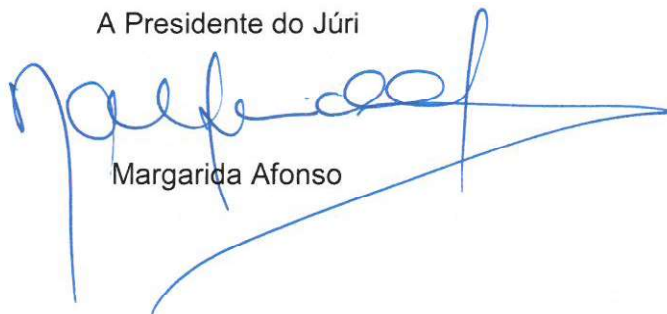 A Presidente do Júri
Margarida Afonso